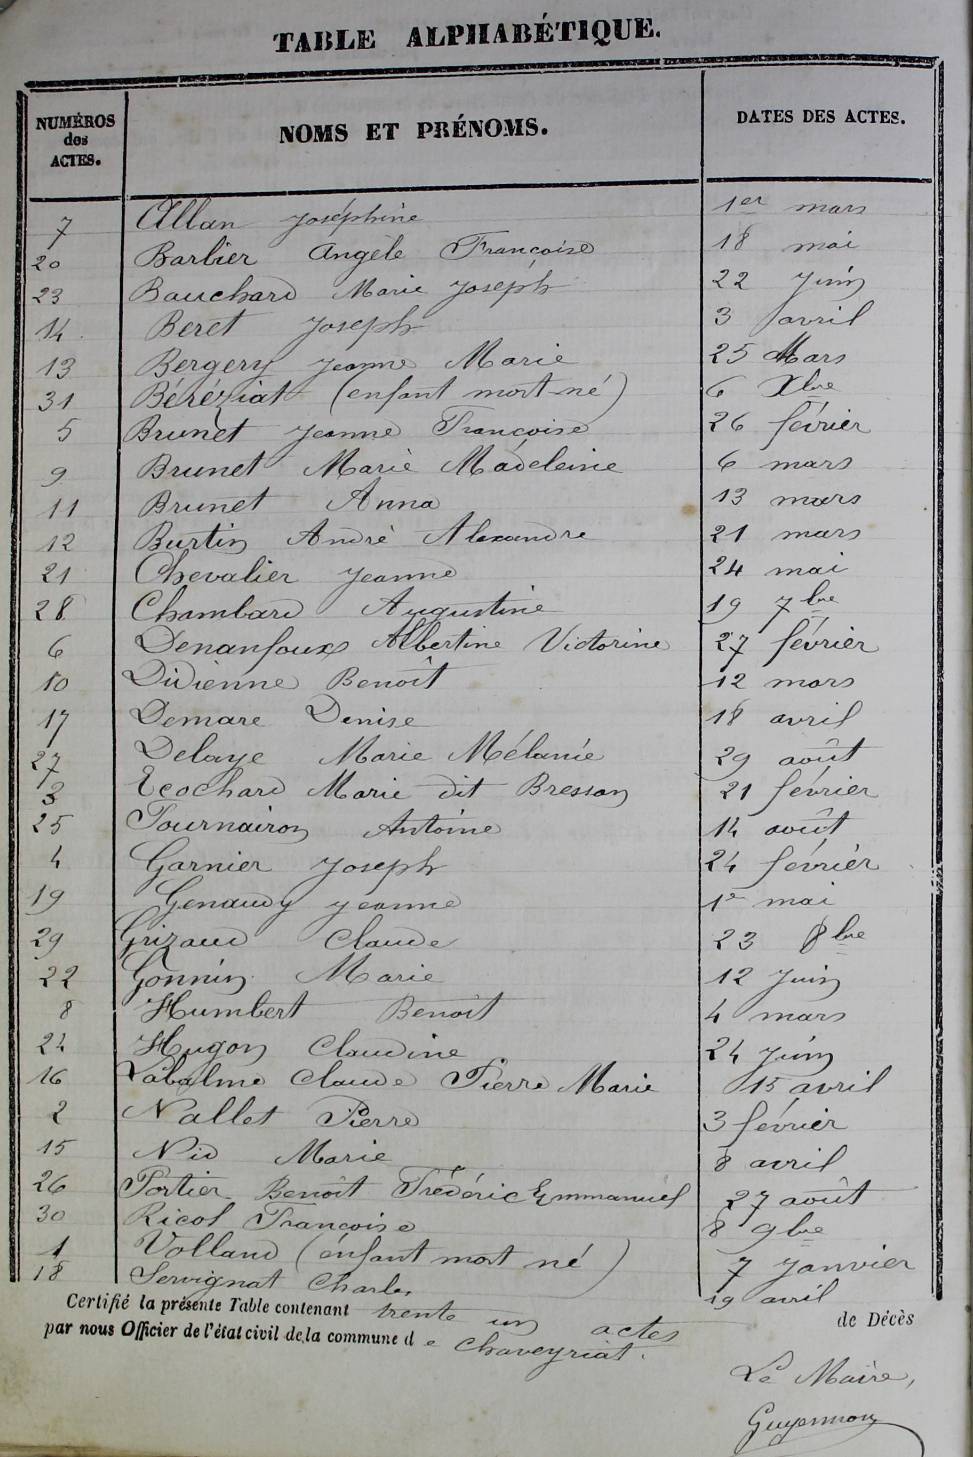 TABLE ALPHABÉTIQUE.
NUMÉROS des ACTES. NOMS ET PRÉNOMS. DATES DES ACTES.
7 Allan Joséphine 1er mars
20 Barbier Angèle Françoise 18 mai
23 Bouchard Marie Joseph 22 Juin
14 Beret Joseph 3 avril
13 Bergery Jeanne Marie 25 Mars
31 Béréziat (enfant mort-né) 6 Xbre
5 Brunet Jeanne Françoise 26 février
9 Brunet Marie Madeleine 6 mars
11 Brunet Anna 13 mars
12 Burtin André Alexandre 21 mars
21 Chevalier Jeanne 24 mai
28 Chambard Augustine 19 7bre
6 Denanfoux Albertine Victorine 27 février
10 Didienne Benoît 12 mars
17 Demare Denise 18 avril
27 Delaye Marie Mélanie 29 août
3 Ecochard Marie dit Bresson 21 février
25 Fournairon Antoine 14 août
4 Garnier Joseph 24 février
19 Genaudy Jeanne 1er mai
29 Grizaud Claude 23 8bre
22 Gonnin Marie 12 Juin
8 Humbert Benoît 4 mars
24 Hugon Claudine 24 Juin
16 Labalme Claude Pierre Marie 15 avril
2 Nallet Pierre 3 février
15 Nid Marie 8 avril
26 Portier Benoît Frédéric Emmanuel 27 août
30 Ricol Françoise 8 9bre
1 Volland (enfant mort né) 7 Janvier
18 Servignat Charles 19 avril
Certifié la présente Table contenant trente un actes de Décès
par nous Officier de l'état civil de la commune de Chaveyriat.
Le Maire,
Guyennon